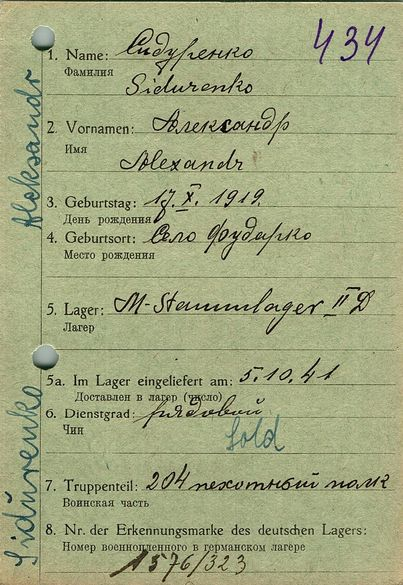 434
1. Name: Сидуренко
Фамилия
Sidurenko
2. Vornamen: Александр
Имя
Alexandr
3. Geburtstag: 17. X. 1919.
День рождения
4. Geburtsort: Село Фударко
Место рождения
5. Lager: M-Stammlager II D
Лагер
5a. Im Lager eingeliefert am: 5.10.41
Доставлен в лагер (число)
6. Dienstgrad: рядовой
Чин
Sold
7. Truppenteil: 204 пехотный полк
Воинская часть
8. Nr. der Erkennungsmarke des deutschen Lagers:
Номер военнопленного в германском лагере
1576/323
Aleksandr
Sidŭrenko